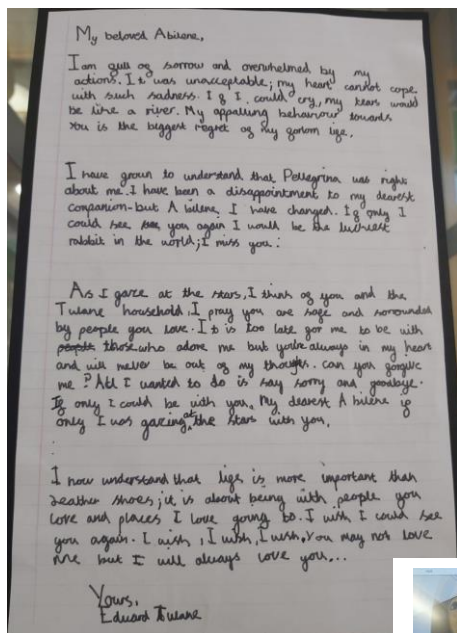 My beloved Abilene,
I am full of sorrow and overwhelmed by my
actions. It was unacceptable; my heart cannot cope
with such sadness. If I could cry, my tears would
be like a river. My appalling behaviour towards
you is the biggest regret of my forlorn life.
I have groun to understand that Pellegrina was right
about me. I have been a disappointment to my dearest
companion-but Abilene, I have changed. If only I
could see you again I would be the luckiest
rabbit in the world; I miss you.
As I gaze at the stars, I think of you and the
Tulane household. I pray you are safe and sorrounded
by people you love. It is too late for me to be with
those who adore me but you're always in my heart
and will never be out of my thoughts. Can you forgive
me? All I wanted to do is say sorry and goodbye.
If only I could be with you. My dearest Abilene if
only I was gazing at the stars with you.
I now understand that life is more important than
leather shoes; it is about being with people you
love and places I love going to. I wish I could see
you again. I wish, I wish, I wish. You may not love
me but I will always love you...
Yours,
Edward Tulane